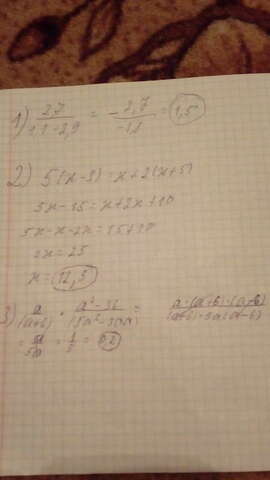 1) 2,7 / 1,1-2,9 = - 2,7 / -1,8 = 1,5
2) 5(x-3)=x+2(x+5)
5x-15=x+2x+10
5x-x-2x=15+10
2x=25
x=12,5
3) a / (a+6) · a²-36 / (5a²-30a) = a·(a+6)·(a-6) / (a+6)·5a(a-6)
= a / 5a = 1 / 5 = 0,2